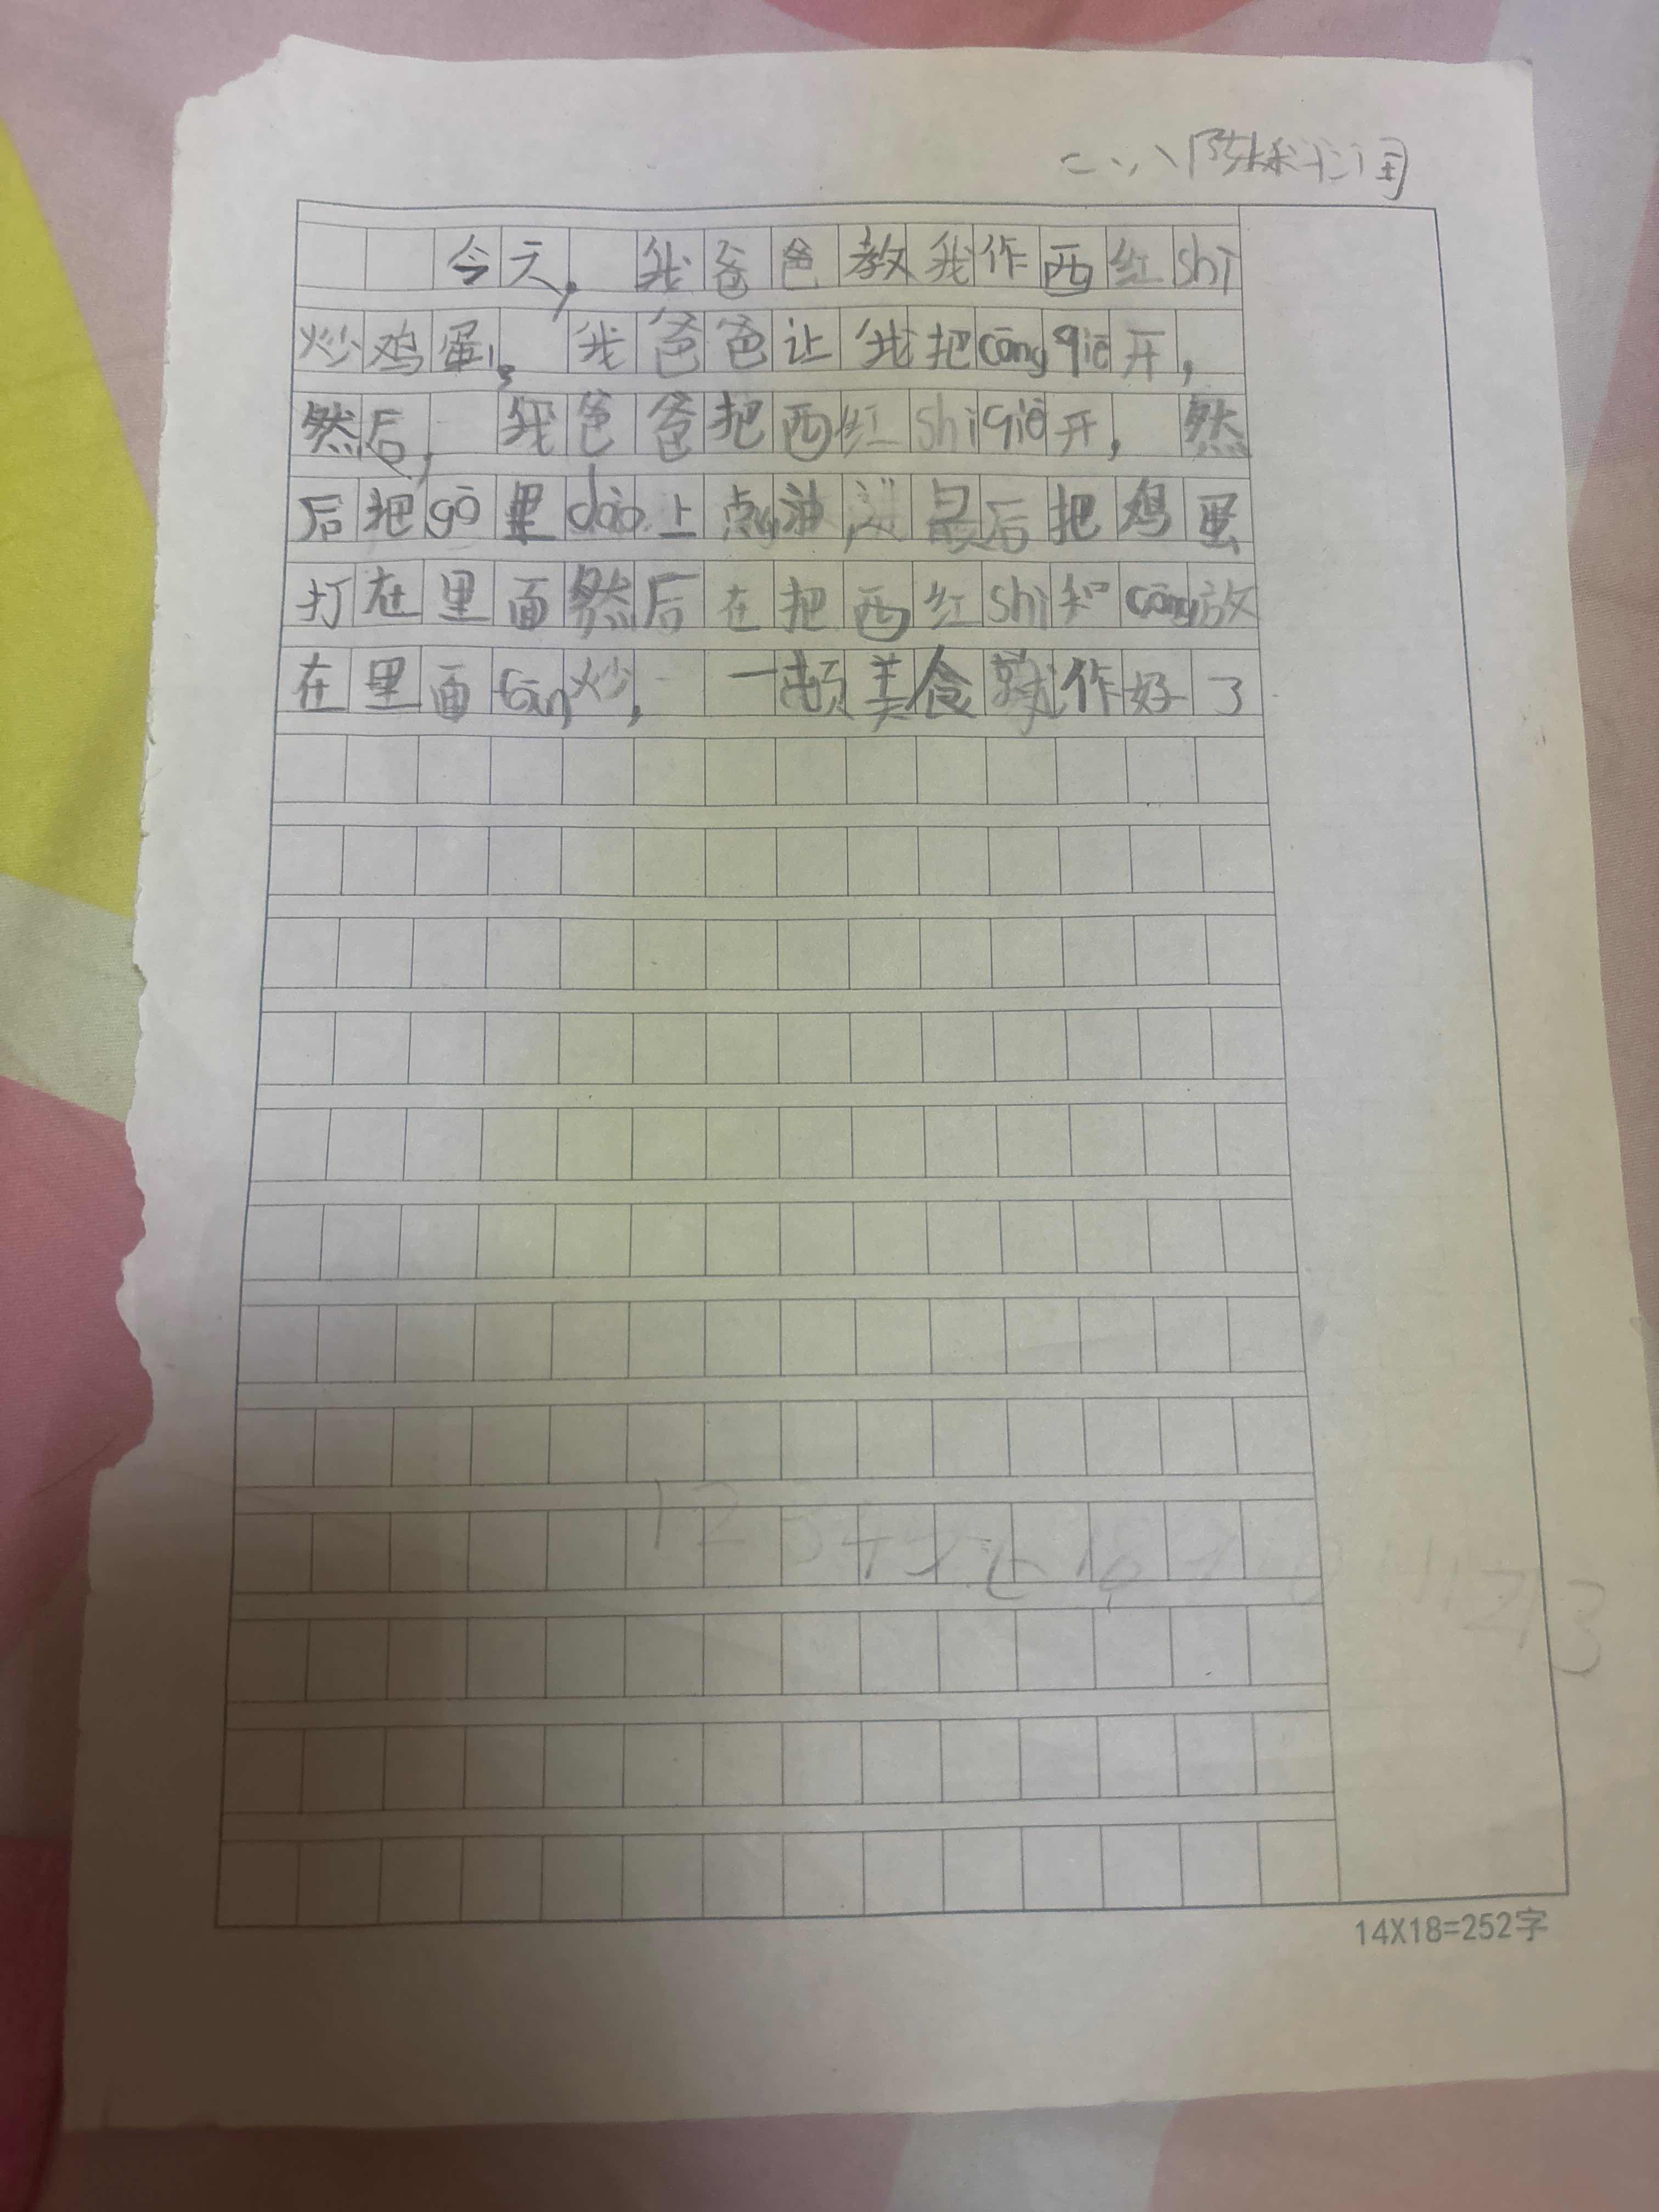 今天，我爸爸教我作西红shī
炒鸡蛋，我爸爸让我把cōng qiē开，
然后，我爸爸把西红shì qiē开，然
后把gō里dào上点油，最后把鸡蛋
打在里面然后在把西红shì和cōng放
在里面 炒，一顿美食就作好了
14X18=252字